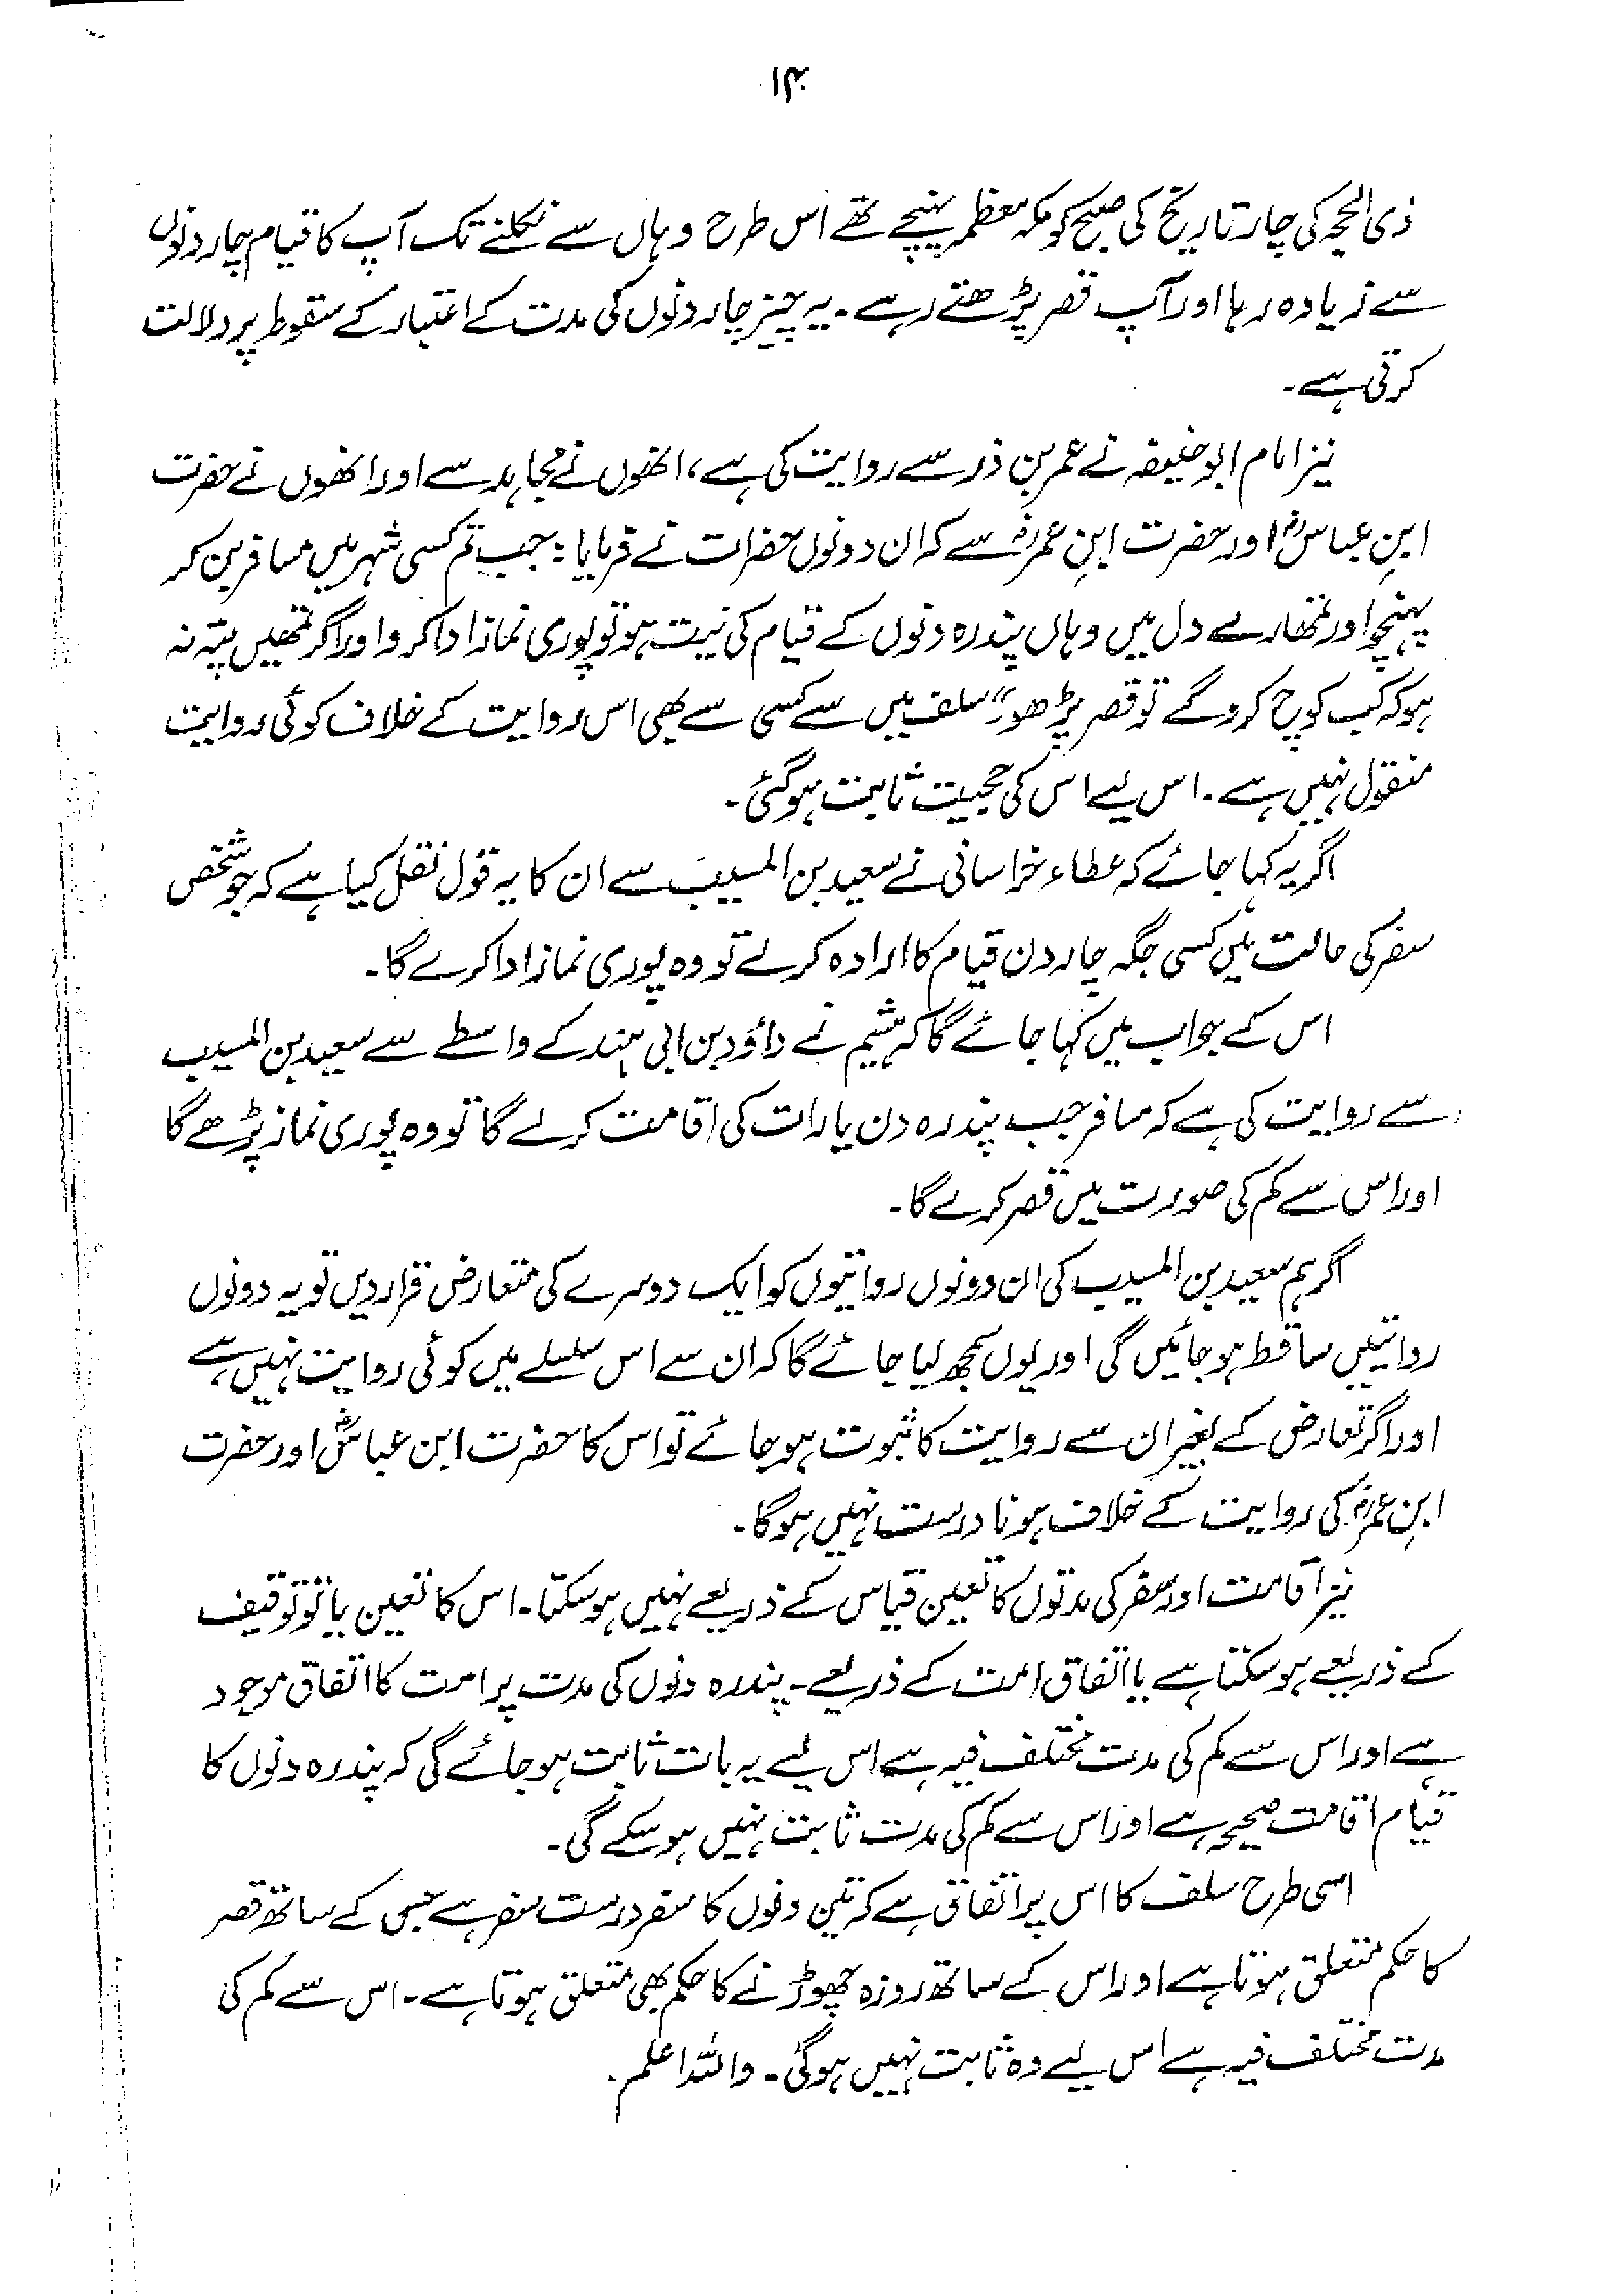 ۱۴
ذی الحجہ کی چار تاریخ کی صبح کو مکہ معظمہ پہنچے تھے اس طرح وہاں سے نکلنے تک آپ کا قیام چار دنوں
سے زیادہ رہا اور آپ قصر پڑھتے رہے۔ یہ چیز چار دنوں کی مدت کے اعتبار کے سقوط پر دلالت
کرتی ہے۔
نیز امام ابو حنیفہ نے عمر بن ذر سے روایت کی ہے، انھوں نے مجاہد سے اور انھوں نے حضرت
ابنِ عباسؓ اور حضرت ابنِ عمرؓ سے کہ ان دونوں حضرات نے فرمایا: جب تم کسی شہر میں مسافر بن کر
پہنچو اور تمھارے دل میں وہاں پندرہ دنوں کے قیام کی نیت ہو تو پوری نماز ادا کرو اور اگر تمھیں پتہ نہ
ہو کہ کب کوچ کرو گے تو قصر پڑھو۔" سلف میں سے کسی سے بھی اس روایت کے خلاف کوئی روایت
منقول نہیں ہے۔ اس لیے اس کی حجیت ثابت ہو گئی۔
اگر یہ کہا جائے کہ عطاء خراسانی نے سعید بن المسیب سے ان کا یہ قول نقل کیا ہے کہ جو شخص
سفر کی حالت میں کسی جگہ چار دن قیام کا ارادہ کر لے تو وہ پوری نماز ادا کرے گا۔
اس کے جواب میں کہا جائے گا کہ ہشیم نے داؤد بن ابی ہند کے واسطے سے سعید بن المسیب
سے روایت کی ہے کہ مسافر جب پندرہ دن یا رات کی اقامت کرلے گا تو وہ پوری نماز پڑھے گا
اور اس سے کم کی صورت میں قصر کرے گا۔
اگر ہم سعید بن المسیب کی ان دونوں روایتوں کو ایک دوسرے کی متعارض قرار دیں تو یہ دونوں
روایتیں ساقط ہو جائیں گی اور یوں سمجھ لیا جائے گا کہ ان سے اس سلسلے میں کوئی روایت نہیں ہے
اور اگر تعارض کے بغیر ان سے روایت کا ثبوت ہو جائے تو اس کا حضرت ابن عباسؓ اور حضرت
ابنِ عمرؓ کی روایت کے خلاف ہونا درست نہیں ہوگا۔
نیز اقامت اور سفر کی مدتوں کا تعین قیاس کے ذریعے نہیں ہو سکتا۔ اس کا تعین یا تو توقیف
کے ذریعے ہو سکتا ہے یا اتفاق امت کے ذریعے۔ پندرہ دنوں کی مدت پر امت کا اتفاق موجود
ہے اور اس سے کم کی مدت مختلف فیہ ہے اس لیے یہ بات ثابت ہو جائے گی کہ پندرہ دنوں کا
قیام اقامت صحیحہ ہے اور اس سے کم کی مدت ثابت نہیں ہو سکے گی۔
اسی طرح سلف کا اس پر اتفاق ہے کہ تین دنوں کا سفر درست سفر ہے جس کے ساتھ قصر
کا حکم متعلق ہوتا ہے اور اس کے ساتھ روزہ چھوڑنے کا حکم بھی متعلق ہوتا ہے۔ اس سے کم کی
مدت مختلف فیہ ہے اس لیے وہ ثابت نہیں ہو گی۔ واللہ اعلم۔